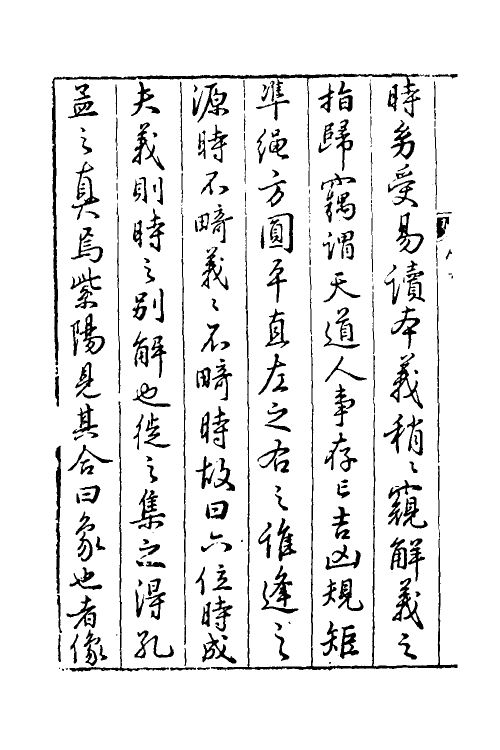 時另受易讀本義稍〻窺解義之
指歸竊謂天道人事存亡吉凶規矩
準繩方圓平直左之右之誰逢之
源時不畸義〻不畸時故曰六位時成
夫義則時之別解也徙之集之得孔
孟之真焉紫陽見其合曰象也者像